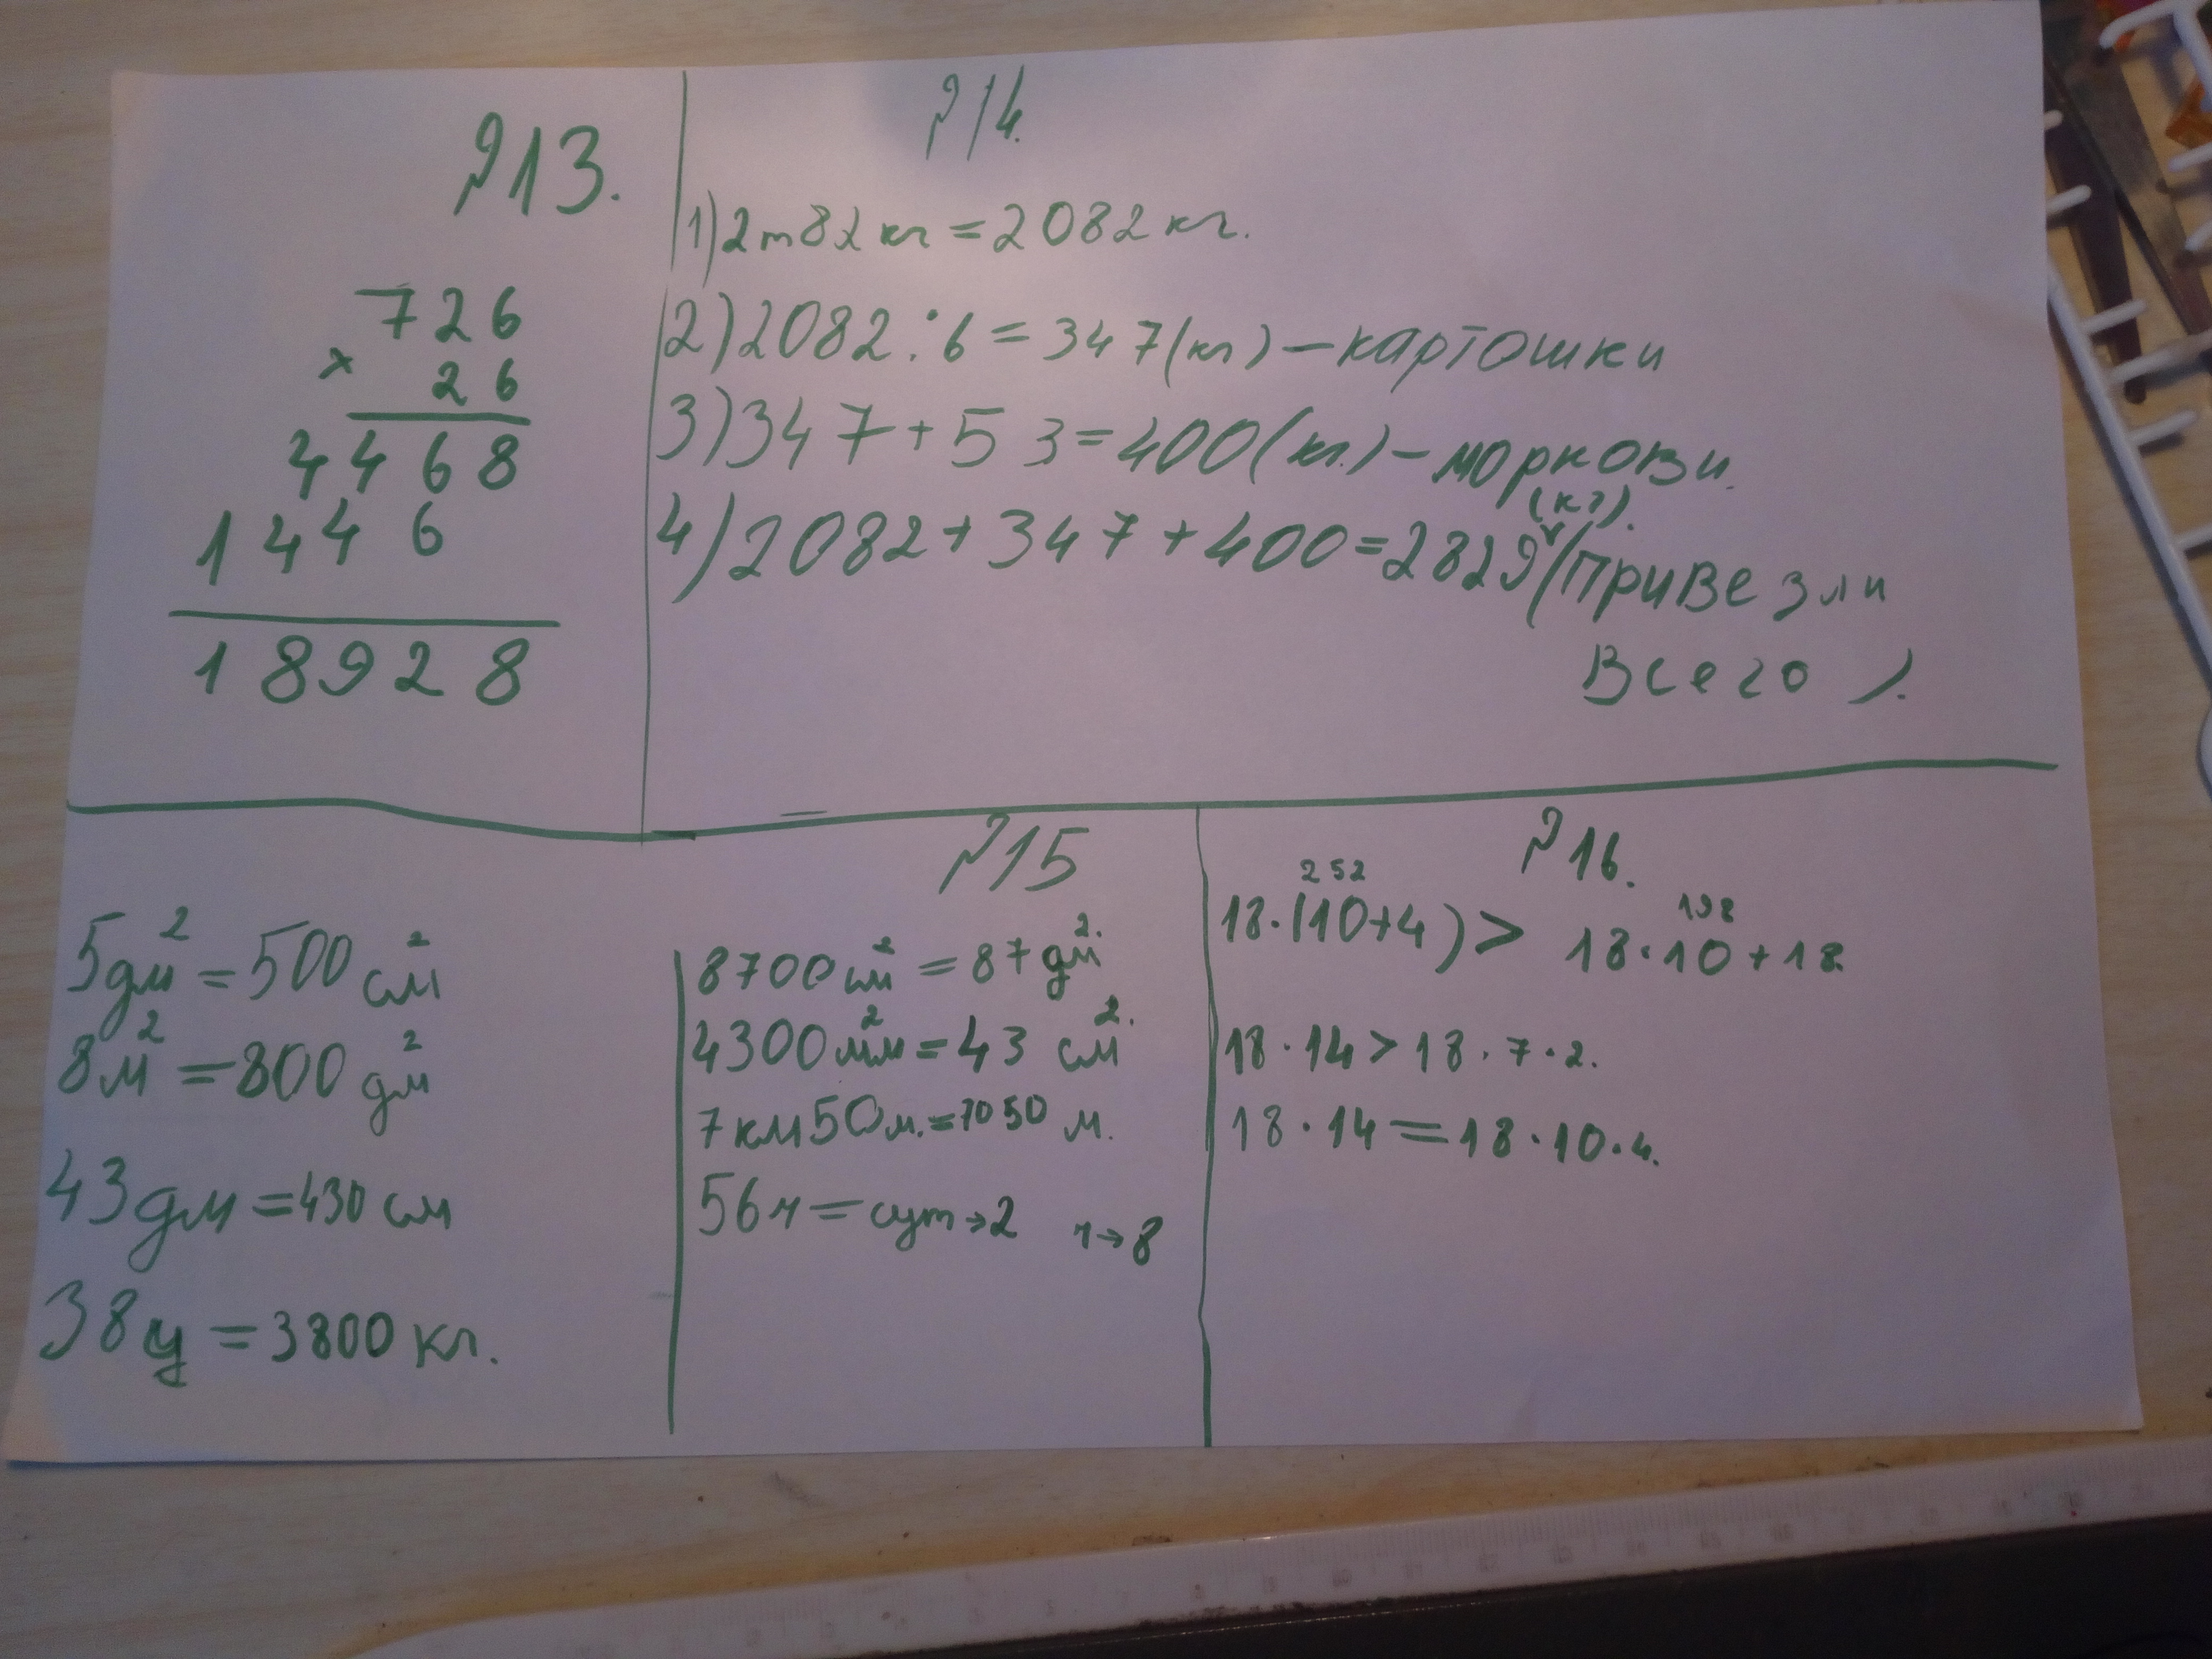 №13.
726
× 26
4468
1446
18928
№14.
1) 2т82кг = 2082кг.
2) 2082 : 6 = 347(кг) – картошки
3) 347 + 53 = 400(кг.) – моркови.
(кг).
4) 2082 + 347 + 400 = 2829 (привезли
всего).
5дм² = 500 см²
8м² = 800 дм²
43дм = 430 см
38ц = 3800 кг.
№15
8700см² = 87 дм².
4300мм² = 43 см².
7км50м. = 7050 м.
56ч = сут→2 ч→8
№16.
252 198
18·(10+4) > 18·10+18
18·14 > 18·7·2.
18·14 = 18·10·4.